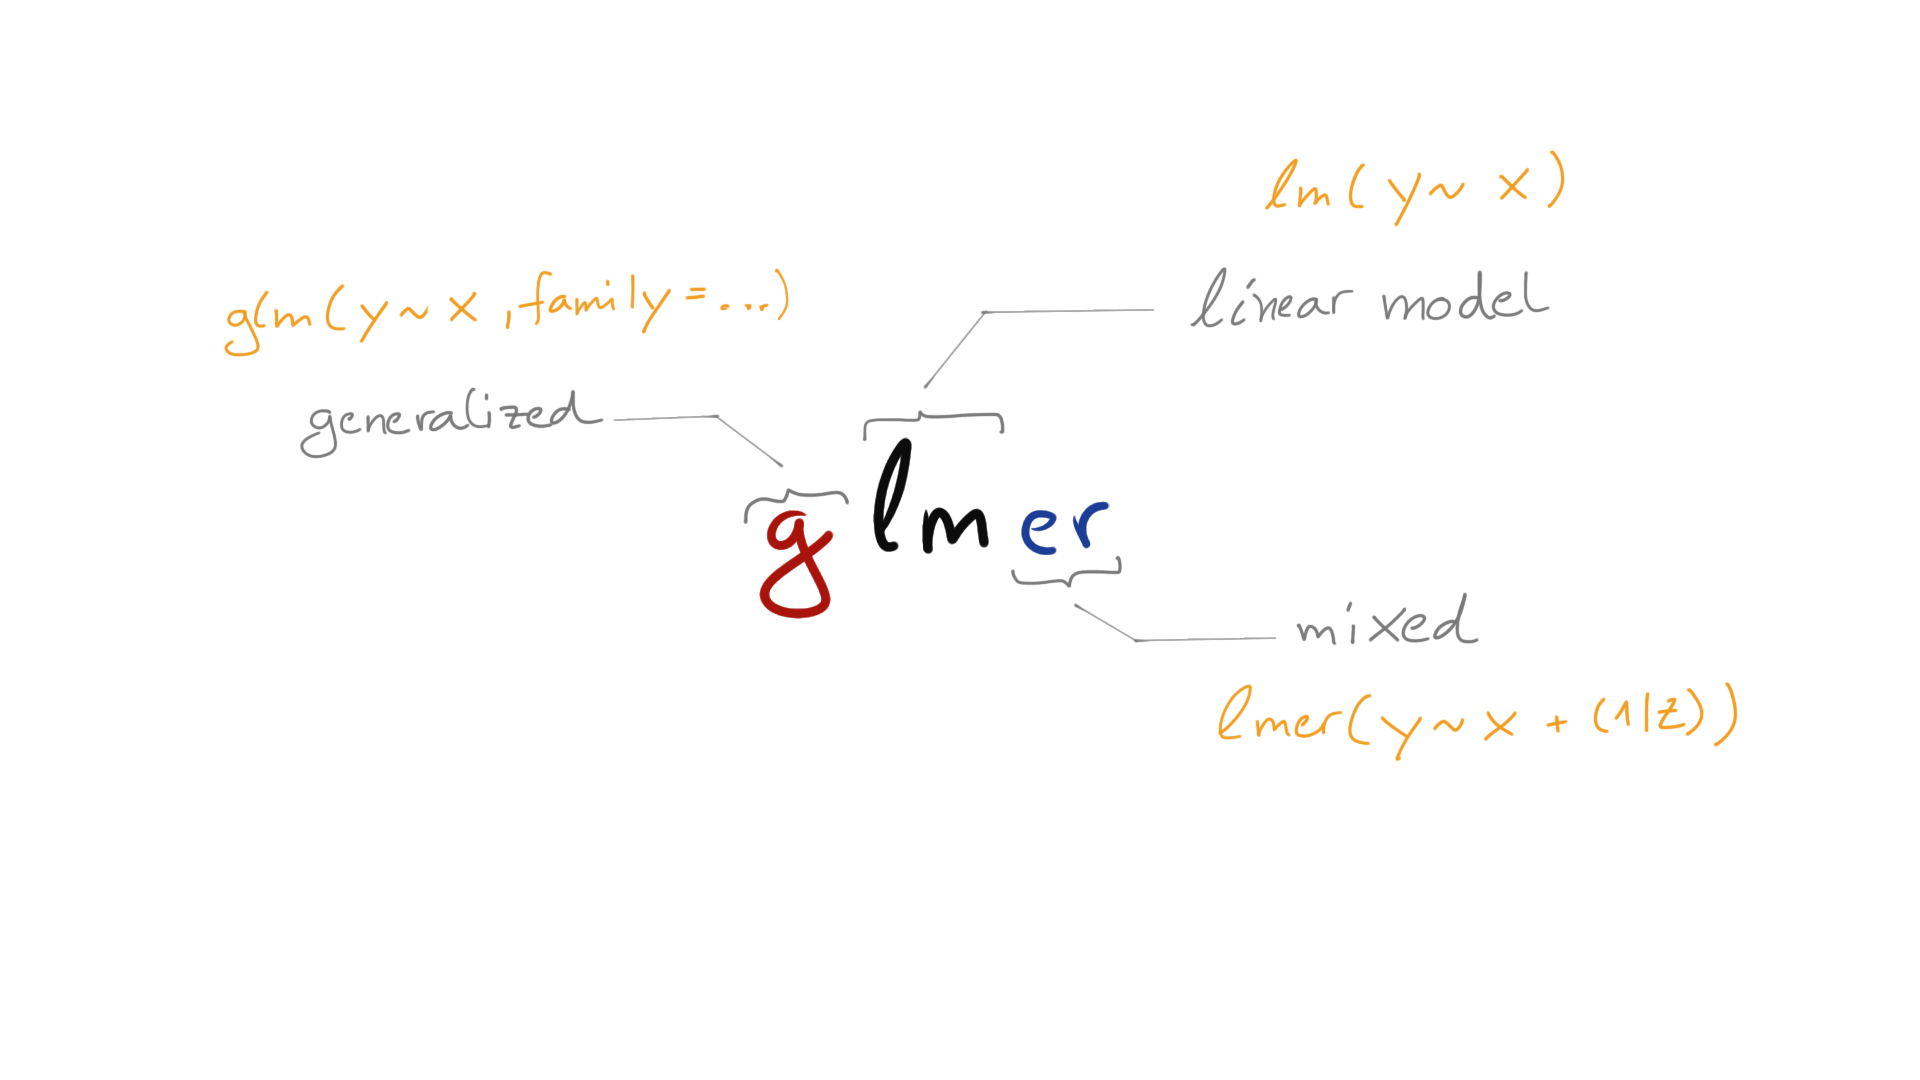 lm(y~ x)
linear model
glm(y~ x ,family=...)
generalized
glmer
mixed
lmer(y~ x + (1|z))